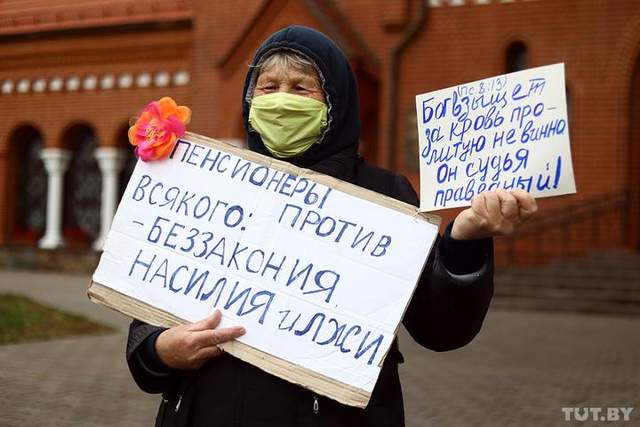 ПЕНСИОНЕРЫ ПРОТИВ
ВСЯКОГО:
- БЕЗЗАКОНИЯ,
НАСИЛИЯ и ЛЖИ
(Пс. 8:13)
Бог взыщет
за кровь про-
литую невинно
Он судья
праведный!
TUT.BY